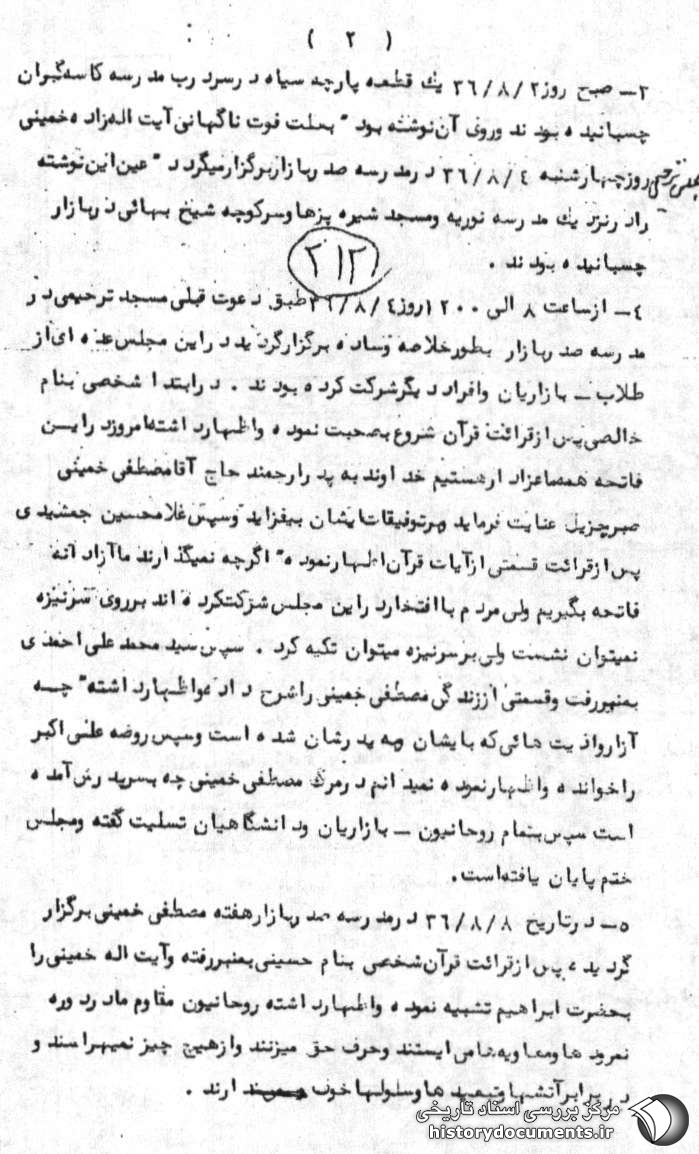 ( ۲ )
۳- صبح روز ۳۶/۸/۲ یك قطعه پارچه سیاه در سردرب مدرسه کاسه گران
چسبانیده بودند وروی آن نوشته بود " بعلت فوت ناگهانی آیت اله زاده خمینی
مجلس ترحیم روز چهارشنبه ۳۶/۸/٤ در مدرسه صدر بازار برگزار میگردد " عین این نوشته
را در نزد یك مدرسه نوریه ومسجد شیره پزها وسرکوچه شیخ بهائی در بازار
چسبانیده بودند .
۲۱۳۱
٤- از ساعت ۸ الی ۱۲۰۰ روز ۳۶/۸/٤ طبق دعوت قبلی مسجد ترحیمی در
مدرسه صدر بازار بطور خلاصه وساده برگزار گردید در این مجلس عده ای از
طلاب - بازاریان وافراد دیگر شرکت کرده بودند . در ابتدا شخصی بنام
خالصی پس از قرائت قرآن شروع بصحبت نموده واظهار داشته امروز در ایـن
فاتحه همه عزادار هستیم خداوند به پدر ارجمند حاج آقا مصطفی خمینی
صبر جزیل عنایت فرماید وبر توفیقات ایشان بیفزاید وسپس غلامحسین جمشیدی
پس از قرائت قسمتی از آیات قرآن اظهار نموده " اگرچه نمیگذارند ما آزادانه
فاتحه بگیریم ولی مردم با افتخار در این مجلس شرکت کرده اند بر روی سرنیزه
نمیتوان نشست ولی بر سرنیزه میتوان تکیه کرد . سپس سید محمد علی احمدی
بمنبر رفت وقسمتی از زندگی مصطفی خمینی را شرح داده واظهار داشته " چـه
آزار واذیت هائی که بایشان وبه پدرشان شده است وسپس روضه علی اکبر
را خوانده واظهار نموده نمیدانم در مرگ مصطفی خمینی چه بسر پدرش آمده
است سپس بتمام روحانیون - بازاریان ودانشگاهیان تسلیت گفته ومجلس
ختم پایان یافته است .
۵- در تاریخ ۳۶/۸/۸ در مدرسه صدر بازار هفته مصطفی خمینی برگزار
گردید ، پس از قرائت قرآن شخصی بنام حسینی بمنبر رفته وآیت اله خمینی را
بحضرت ابراهیم تشبیه نموده واظهار داشته روحانیون مقاوم ما در دوره
نمرود ها ومعاویه ها می ایستند وحرف حق میزنند واز هیچ چیز نمیهراسند و
در برابر آتشها وتبعید ها وسلولها خوف ندارند .
مرکز بررسی اسناد تاریخی
historydocuments.ir